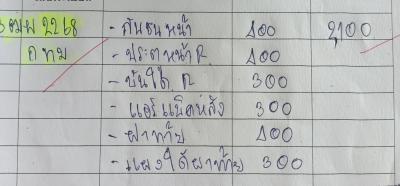 ฒมพ 2268 - กันชนหน้า 400 2,100
ถ ทม - ประตูหน้า R. 400
- บันได R 300
- แอร์แบ็คหลัง 300
- ฝาท้าย 400
- แผงใต้ฝาท้าย 300